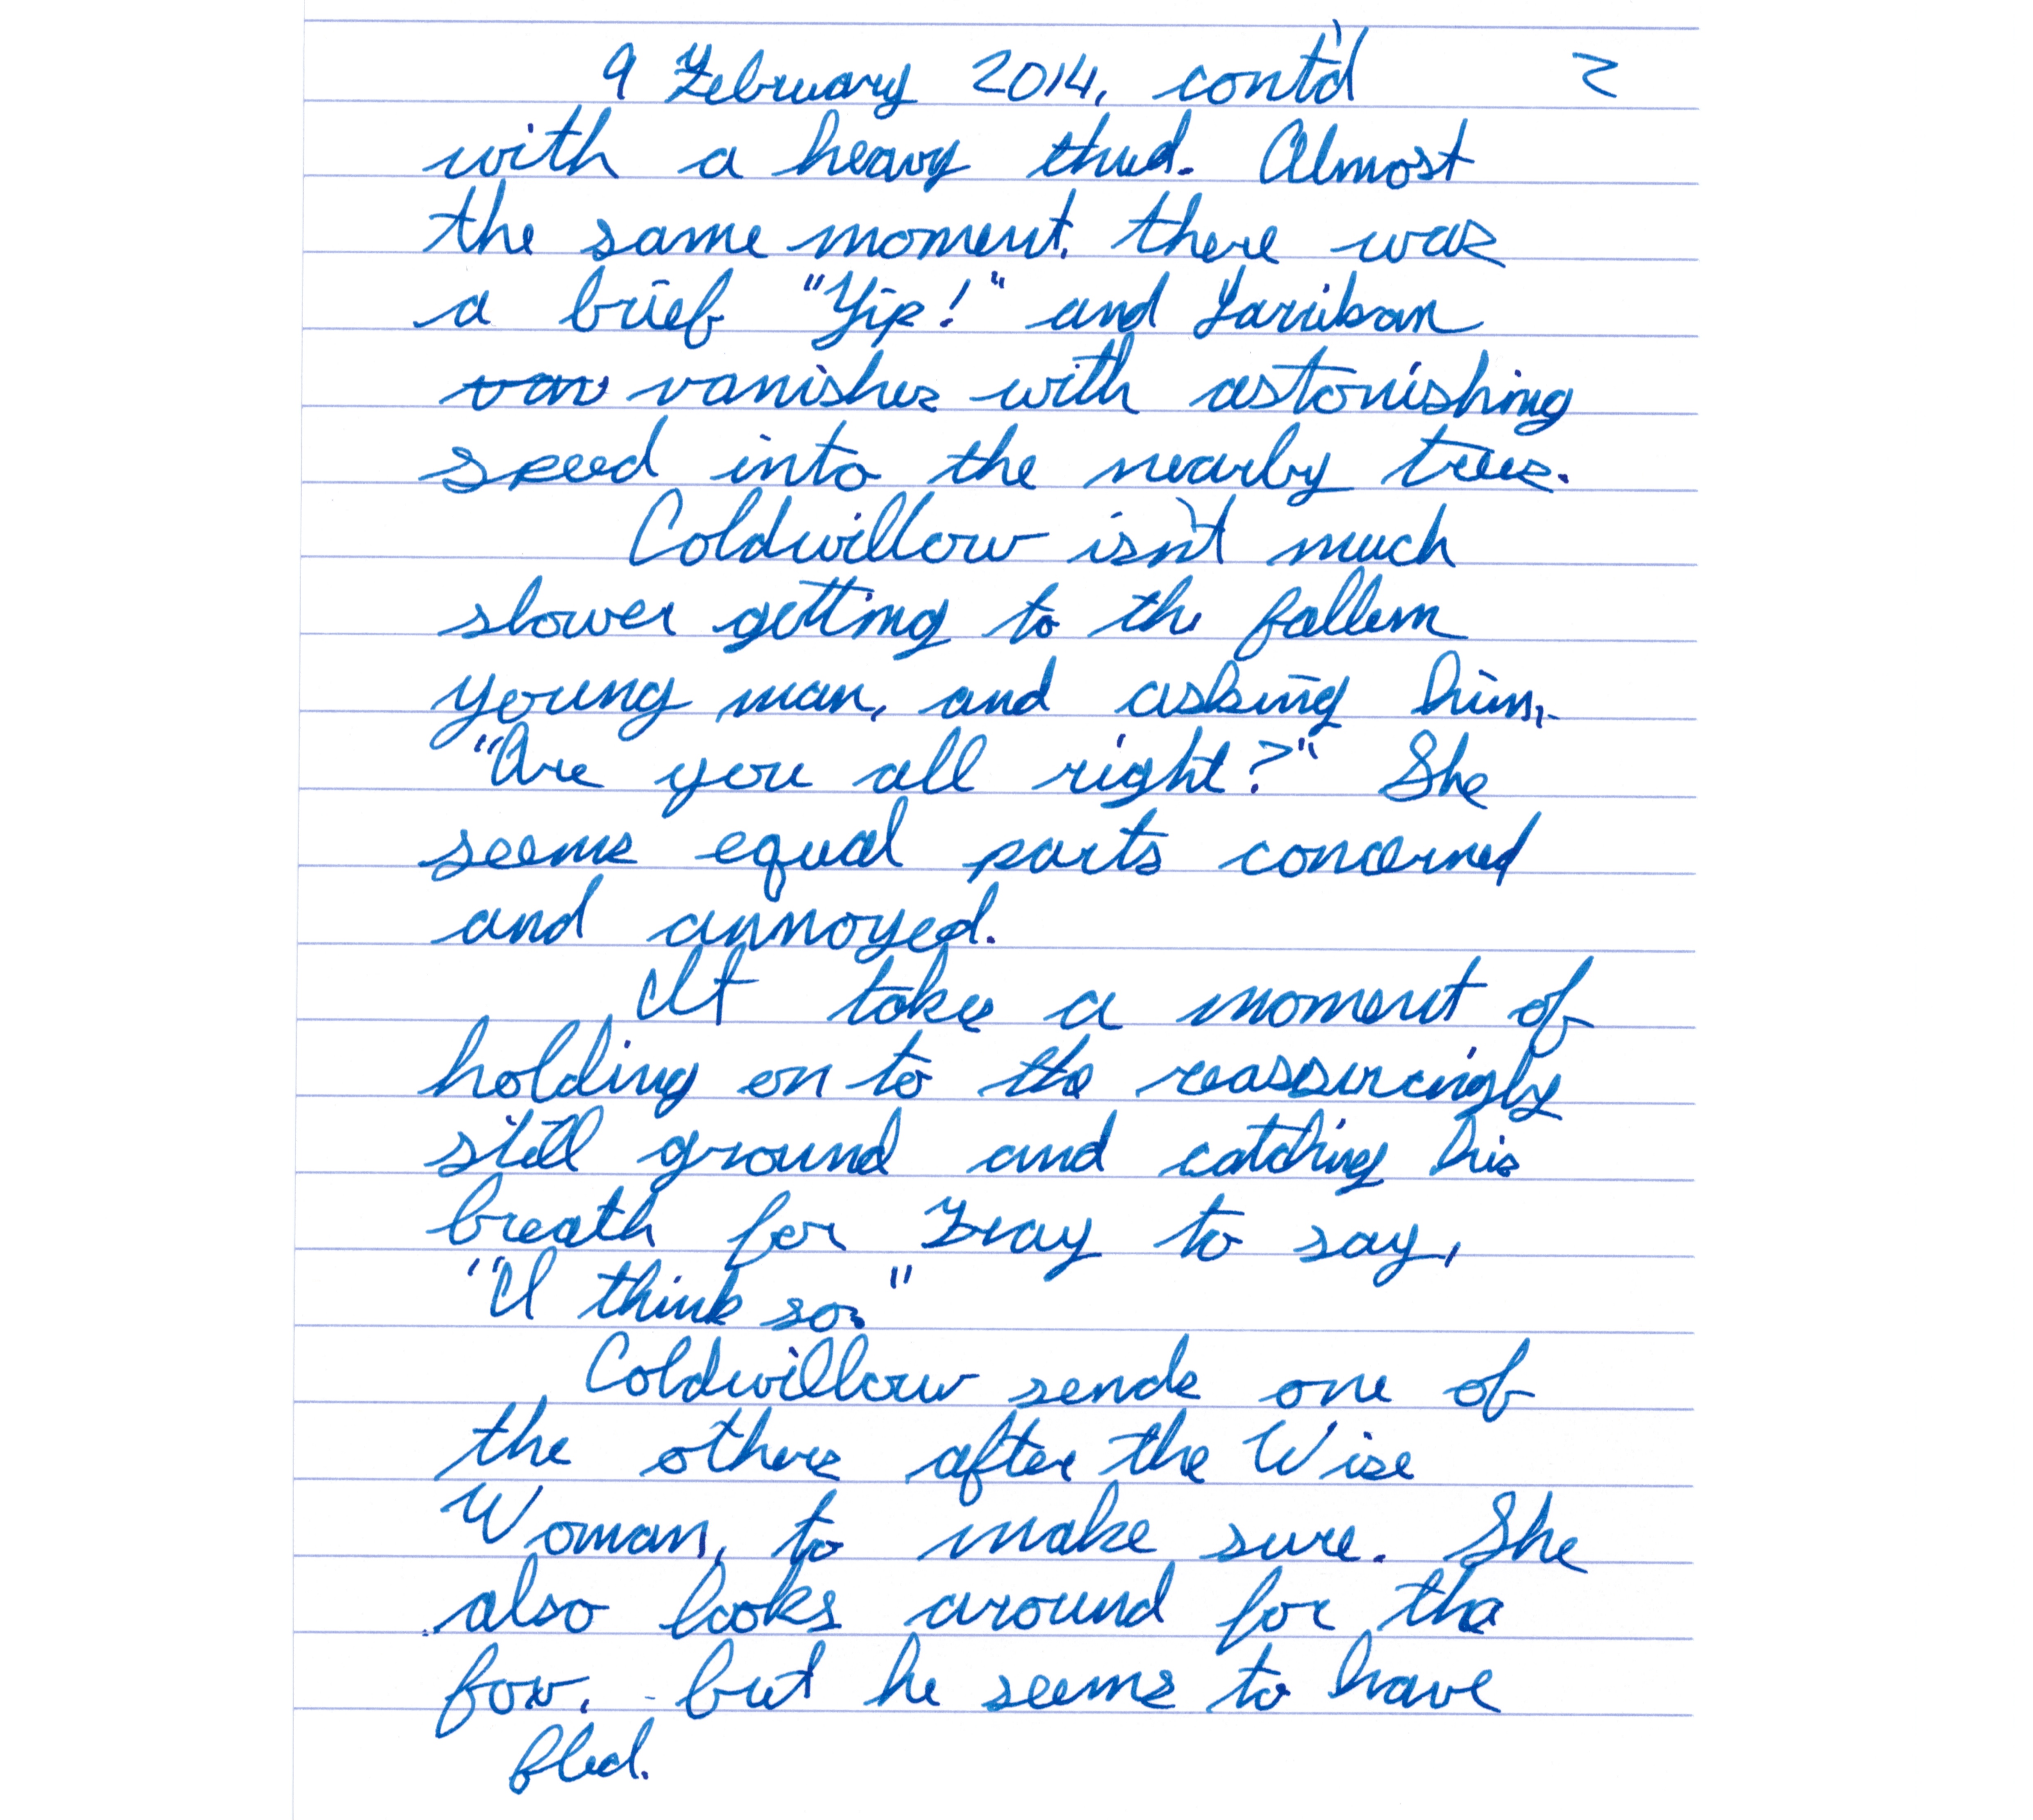 9 February 2014, cont'd 2
with a heavy thud. Almost
the same moment, there was
a brief "Yip!" and
van vanishes with astonishing
speed into the nearby trees.
Coldwillow isn't much
slower getting to the fallen
young man, and asking him,
"Are you all right?" She
seems equal parts concerned
and annoyed.
It takes a moment of
holding on to the reassuringly
still ground and catching his
breath for to say,
"I think so."
Coldwillow sends one of
the others after the Wise
Woman, to make sure. She
also looks around for the
fox, but he seems to have
fled.